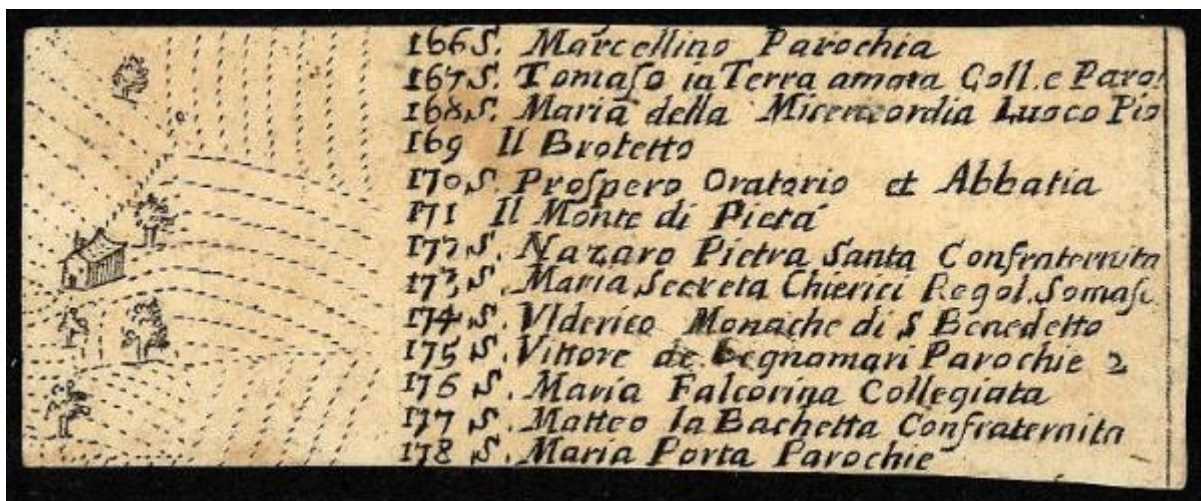 166 S. Marcellino Parochia
167 S. Tomaſo in Terra amara Coll. e Paro.
168 S. Maria della Misericordia Luoco Pio
169 Il Brotetto
170 S. Proſpero Oratorio et Abbatia
171 Il Monte di Pietá
172 S. Nazaro Pietra Santa Confraternita
173 S. Maria Secreta Chierici Regol. Somaſc
174 S. Vlderico Monache di S Benedetto
175 S. Vittore de Parochie 2
176 S. Maria Falcorina Collegiata
177 S. Matteo la Bachetta Confraternita
178 S. Maria Porta Parochie